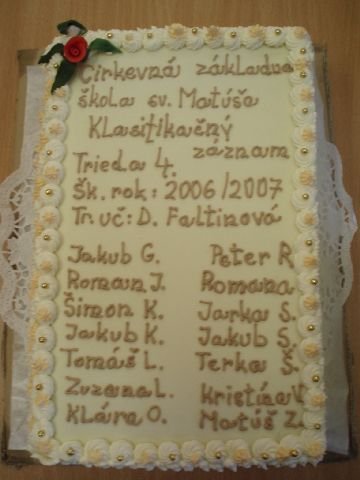 Cirkevná základná
škola sv. Matúša
Klasifikačný
záznam
Trieda 4.
Šk. rok: 2006/2007
Tr. uč: D. Faltinová
Jakub G. Peter R
Roman J. Romana
Šimon K. Jarka S.
Jakub K. Jakub S.
Tomáš L. Terka Š.
Zuzana L. Kristína V
Klára O. Matúš Z.